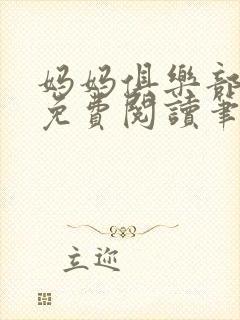 妈妈俱樂部
免費閱讀筆
立迩